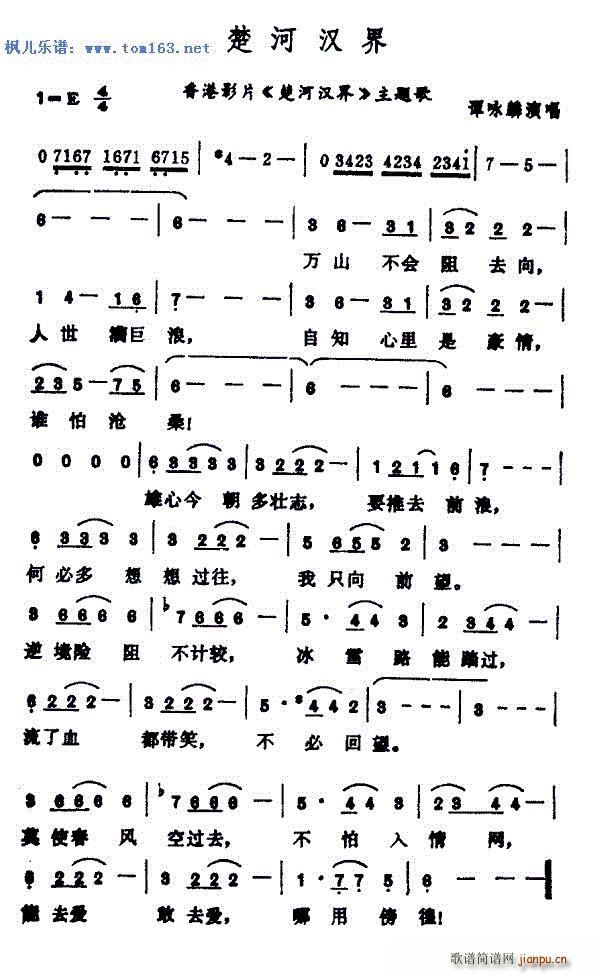 枫儿乐谱：www.tom163.net
楚河汉界
1=E 4/4
香港影片《楚河汉界》主题歌
谭咏麟演唱
0 7167 1671 6715 | #4 - 2 - | 0 3423 4234 2341 | 7 - 5 - |
6 - - - | 6 - - - | 3 6 - 31 | 32 2 2 - |
万山 不会 阻 去向，
1 4 - 16 | 7 - - - | 3 6 - 31 | 32 2 2 - |
人世 满巨浪， 自知 心里 是 豪情，
235 - 75 | 6 - - - | 6 - - - | 6 - - - |
谁怕沧 桑！
0 0 0 0 | 6 333 33 | 3 222 - | 1 2111 6 | 7 - - - |
雄心今 朝多壮志， 要推去 前浪，
6 333 - | 3 222 - | 5 6552 | 3 - - - |
何必多 想想过往， 我只向 前望。
3 666 6 | ♭7 666 - | 5 · 44 3 | 2344 - |
逆境险 阻 不计较， 冰雪路能踏过，
6 222 - | 3 222 - | 5 · #44 2 | 3 - - - | 3 - - - |
流了血 都带笑， 不必回望。
3 666 - | ♭7 666 - | 5 · 44 3 | 23 44 - |
莫使春 风 空过去， 不怕入情网，
6 222 - | 3 222 - | 1 · 77 5 | 6 - - - ‖
能去爱 敢去爱， 哪用傍徨！
歌谱简谱网
jianpu.cn